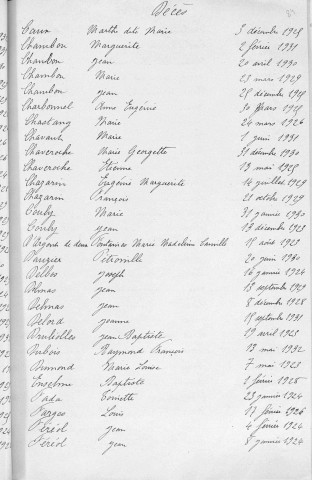 Décès
Caux Marthe dite Marie 3 décembre 1928
Chambon Marguerite 2 février 1931
Chambon Jean 20 avril 1930
Chambon Marie 23 mars 1929
Chambon Jean 28 décembre 1928
Charbonnel Anne Eugénie 30 mars 1928
Chastang Marie 24 mars 1926
Chavant Marie 1 juin 1931
Chaveroche Marie Georgette 31 décembre 1930
Chaveroche Etienne 13 mai 1928
Chazarin Eugénie Marguerite 14 juillet 1929
Chazarin François 21 octobre 1929
Couly Marie 31 janvier 1930
Couly Jean 13 décembre 1923
Marie Madeleine Camille 17 août 1923
Dauzier Pétronille 20 juin 1930
Delbos Joseph 16 janvier 1924
Delmas Jean 18 septembre 1929
Delmas Jean 8 décembre 1928
Delord Jeanne 18 septembre 1931
Jean Baptiste 19 avril 1923
Dubois Raymond François 13 mai 1932
Dumond Marie Louise 7 mai 1923
Enselme Baptiste 2 février 1928
Fada Toinette 23 janvier 1924
Farges Louis 17 février 1926
Féréol Jean 4 février 1924
Féréol Jean 8 janvier 1924